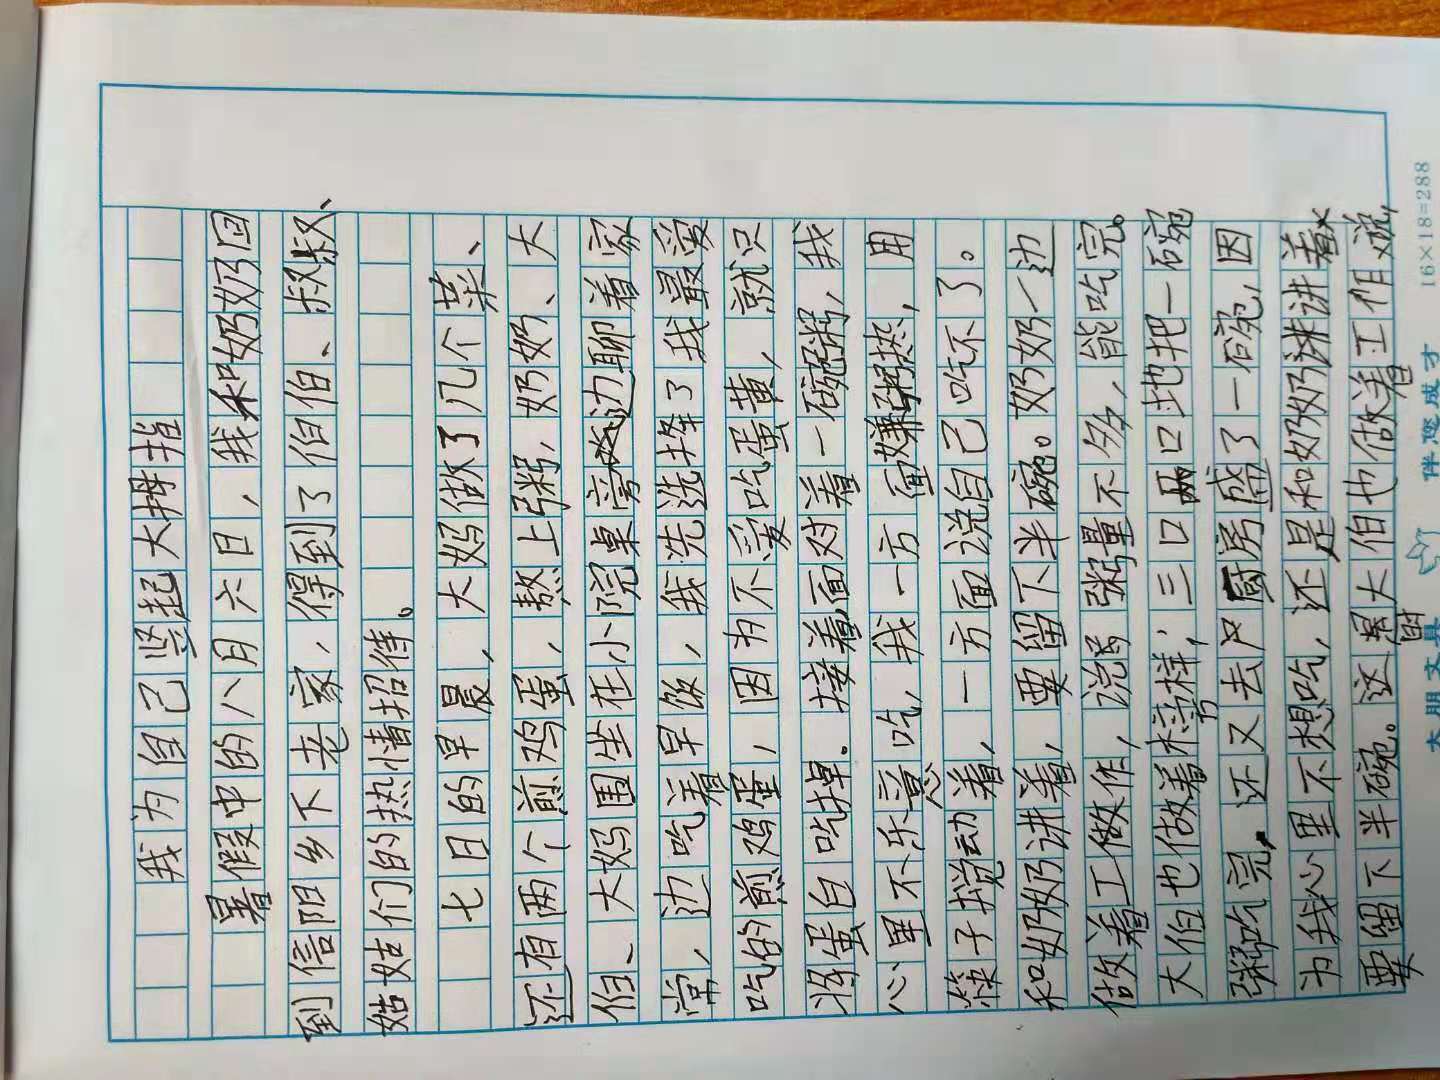 我为自己竖起大拇指
暑假中的八月六日，我和奶奶回
到信阳乡下老家，得到了伯伯、叔叔、
姑姑们的热情招待。
七日的早晨，大妈做了几个菜、
还有两个煎鸡蛋，熬上粥，奶奶、大
伯、大妈围坐在小院桌旁边聊着家
常，边吃着早饭，我先选择了我最爱
吃的煎鸡蛋，因为不爱吃蛋黄，就只
将蛋白吃掉。接着面对着一碗粥，我
心里不乐意吃，我一方面嫌粥热，用
筷子搅动着，一方面说自己吃不了。
和奶奶讲着，要留下半碗。奶奶一边
做着工做作，说粥量不多，能吃完。
大伯也做着榜样，三口两口地把一碗
粥吃完，还又去厨房盛了一碗，因
为我心里不想吃，还是和奶奶讲着
要留下半碗。这时大伯也做着工作说，
大朋文具 伴您成才 16×18=288